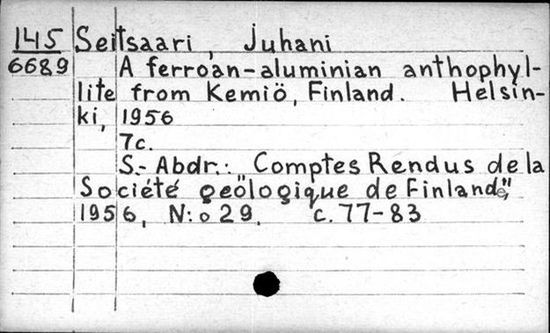 145 Seitsaari, Juhani
6689 A ferroan-aluminian anthophyl-
lite from Kemiö, Finland. Helsin-
ki, 1956
7c.
S.-Abdr.: Comptes Rendus de la
Société geölogique de Finlande",
1956, N:o 29. c. 77-83